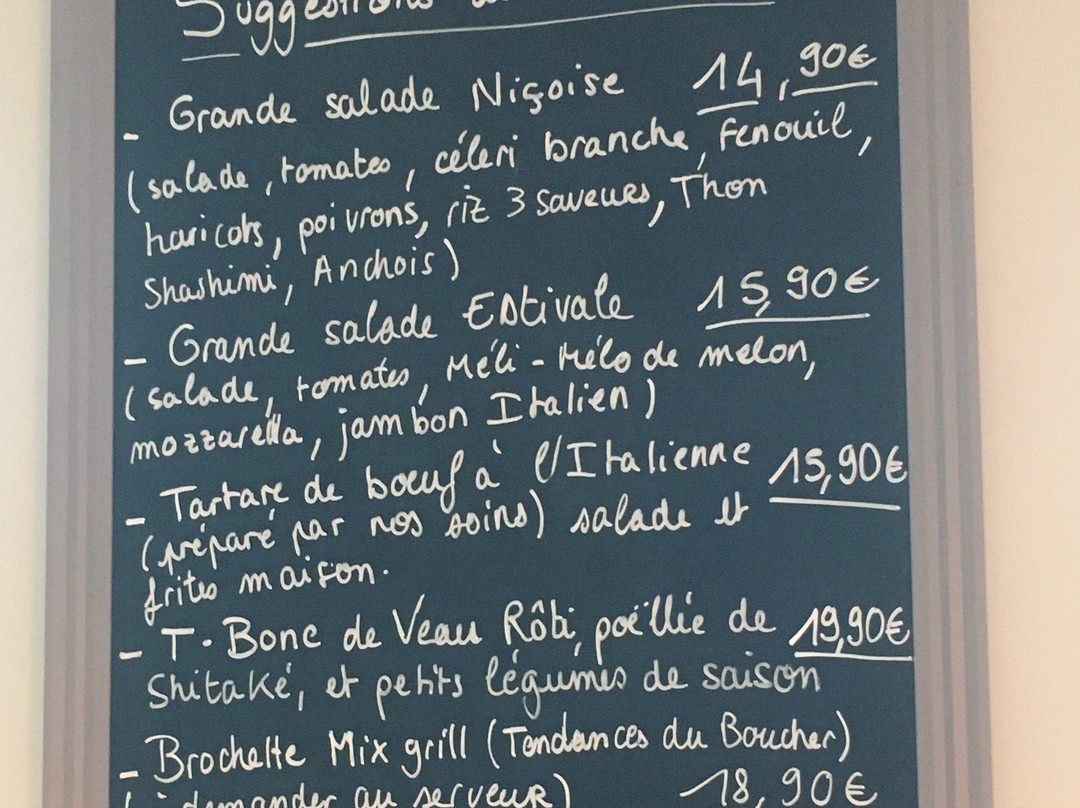 Suggestions
- Grande salade Niçoise 14,90€
(salade, tomates, céleri branche, Fenouil,
haricots, poivrons, riz 3 saveurs, Thon
Shashimi, Anchois)
- Grande salade Estivale 15,90€
(salade, tomates, Méli-Mélo de melon,
mozzarella, jambon Italien)
- Tartare de boeuf à l'Italienne 15,90€
(préparé par nos soins) salade et
frites maison.
- T.Bone de Veau Rôti, poëllée de 19,90€
Shitaké, et petits légumes de saison
- Brochette Mix grill (Tendances du Boucher)
demander au serveur) 18,90€